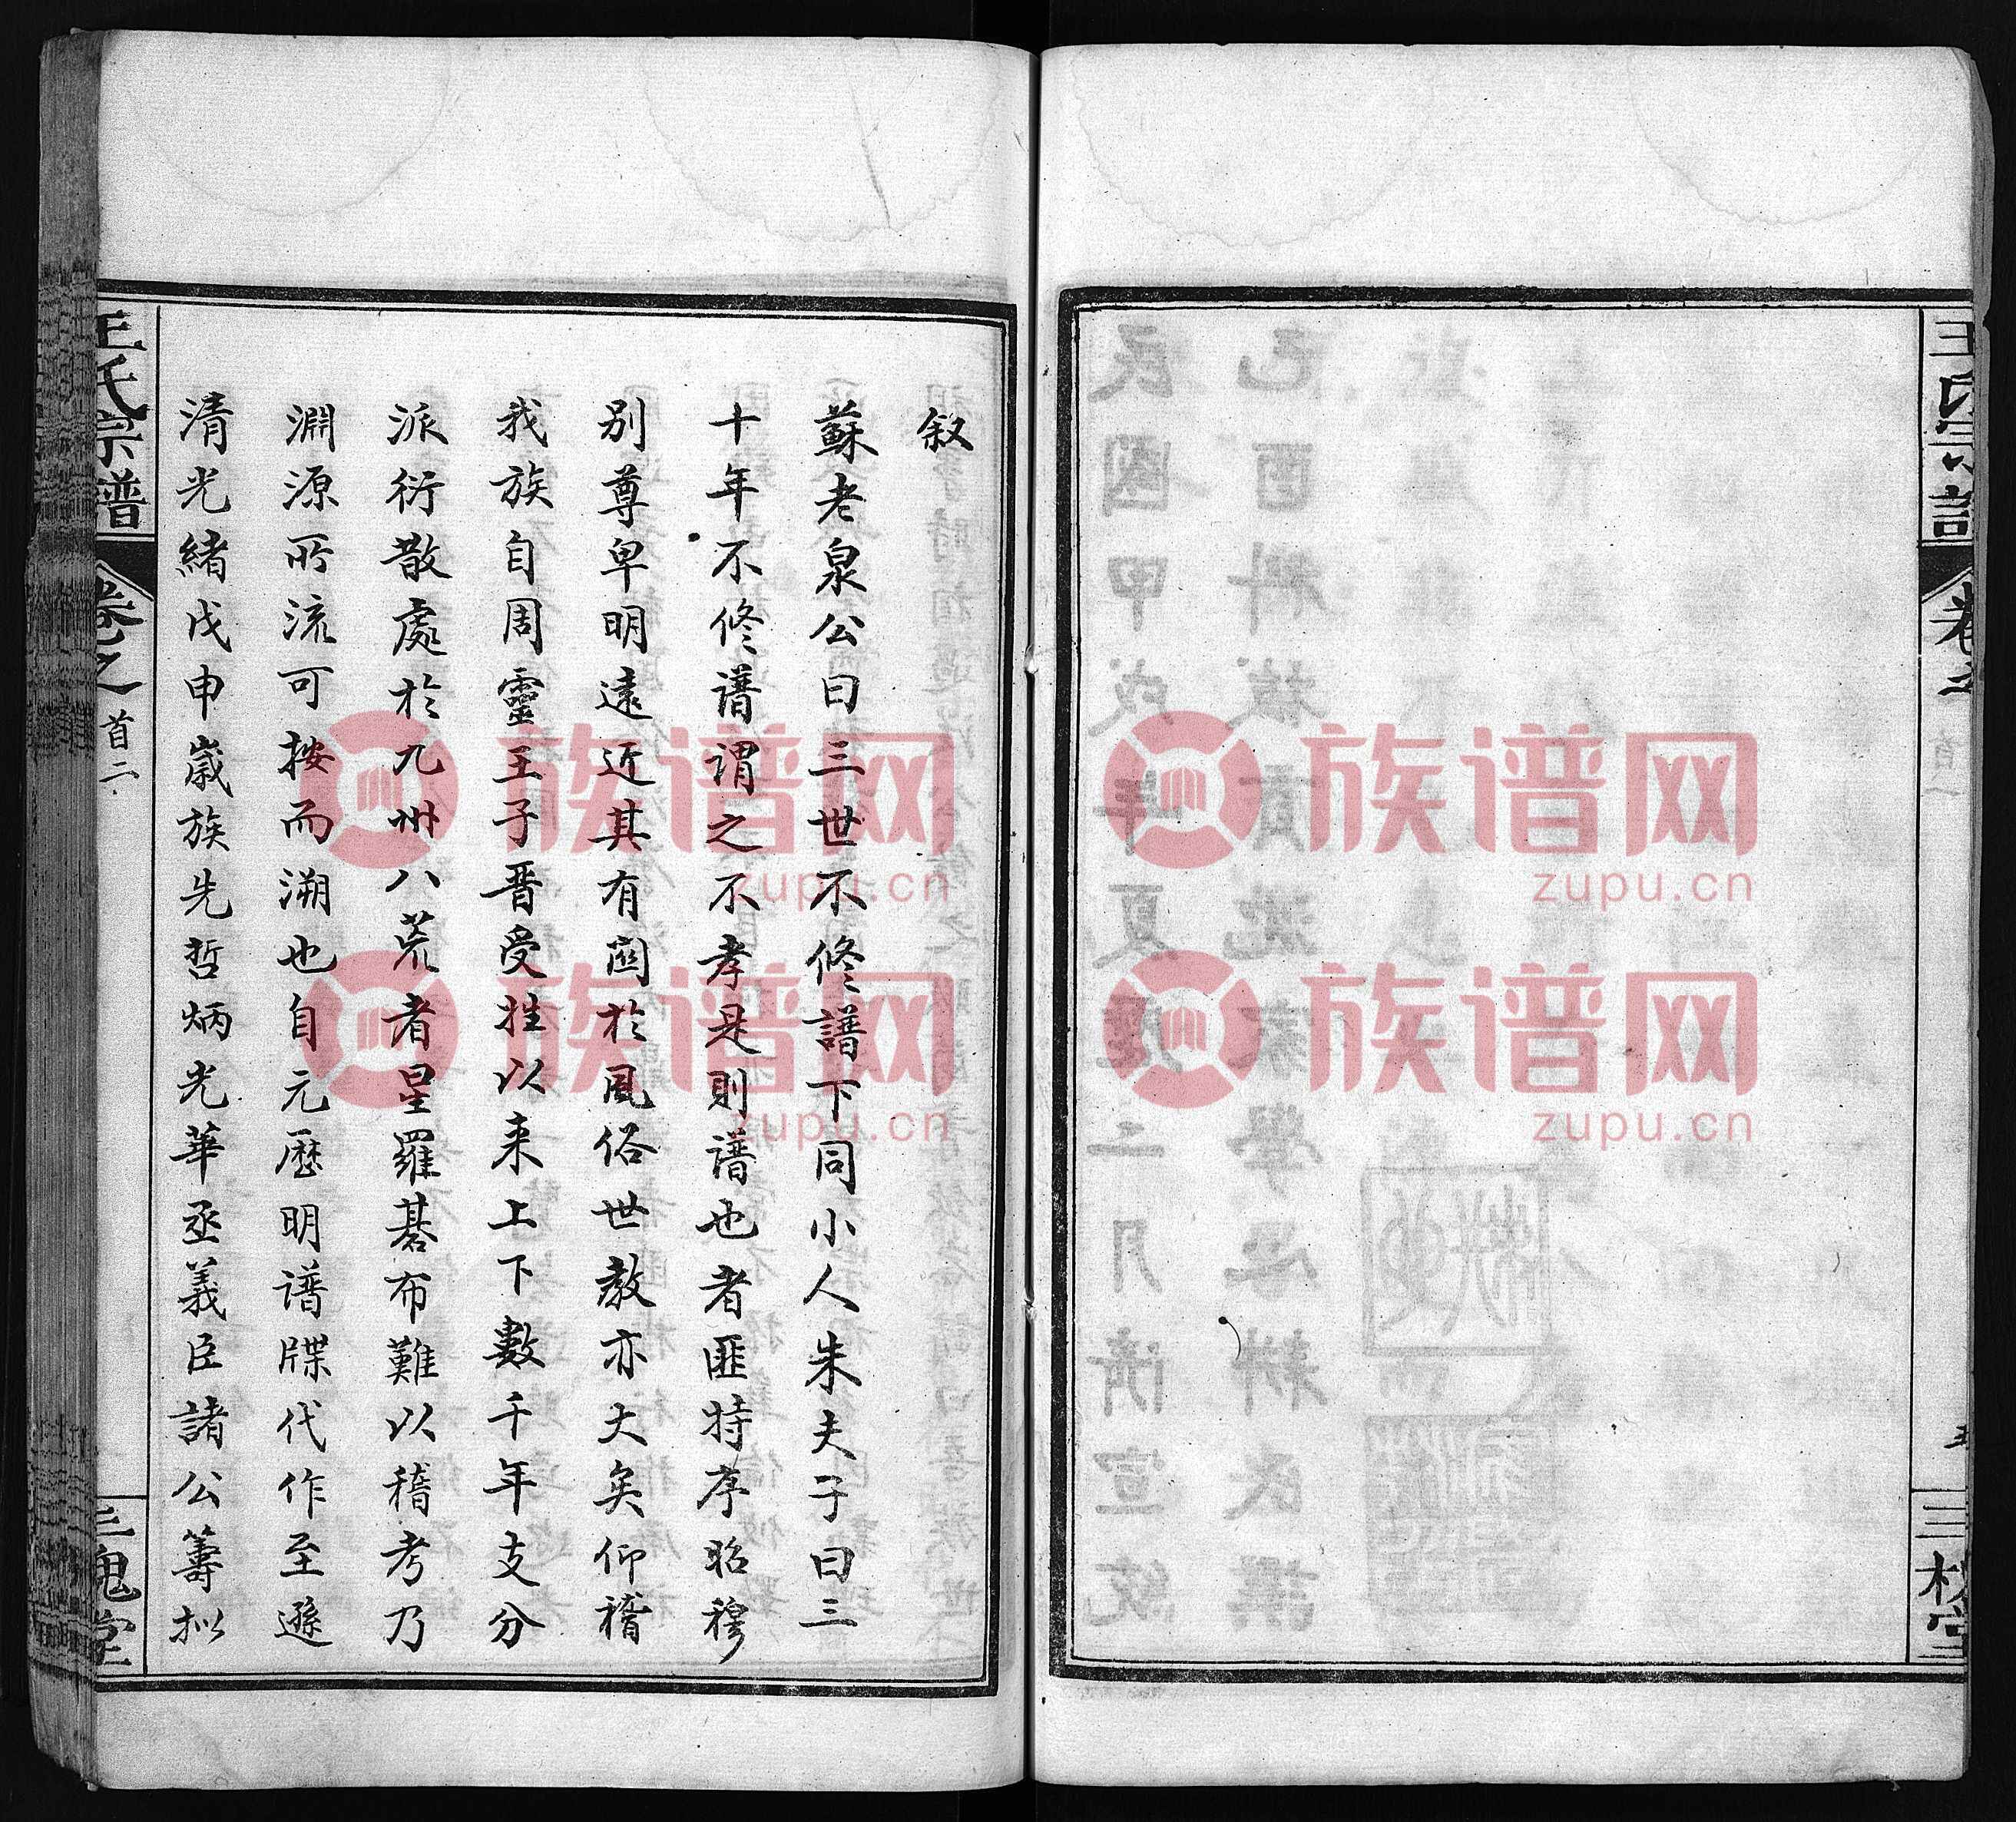 王氏宗譜
卷之
首一
五
三槐堂
叙
蘇老泉公曰三世不修譜下同小人朱夫子曰三
十年不修谱謂之不孝是則谱也者匪特序昭穆
别尊卑明遠近其有関於風俗世教亦大矣仰稽
我族自周靈王子晋受姓以来上下數千年支分
派衍散處於九州八荒者星羅碁布難以稽考乃
淵源所流可按而溯也自元歷明谱牒代作至遜
清光緒戊申歲族先哲炳光華丞義臣諸公籌拟
王氏宗譜
卷之
首二
三槐堂
族谱网
zupu.cn
族谱网
zupu.cn
族谱网
zupu.cn
族谱网
zupu.cn